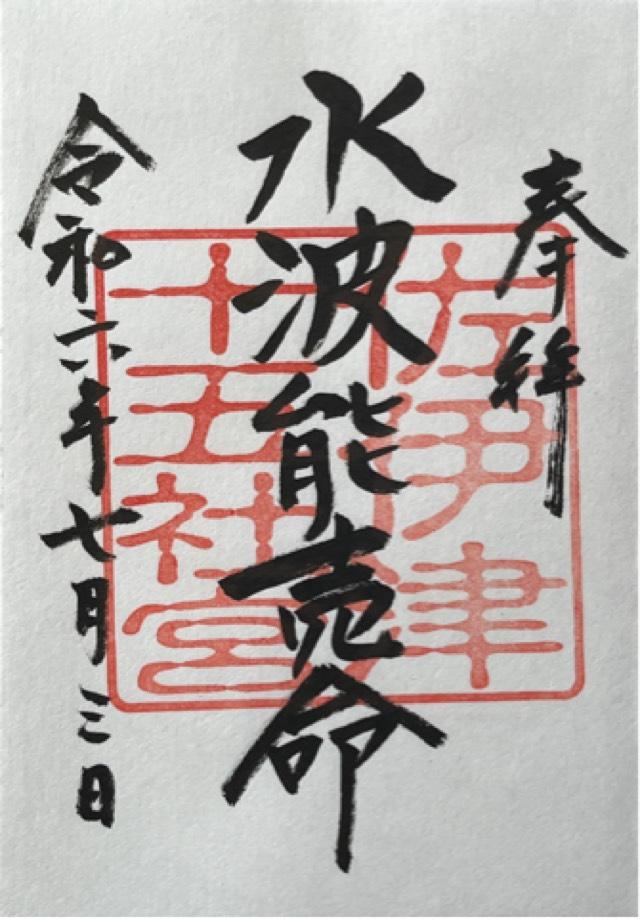 奉拝
水波能売命
令和六年七月三日
佐伊津
十五社宮